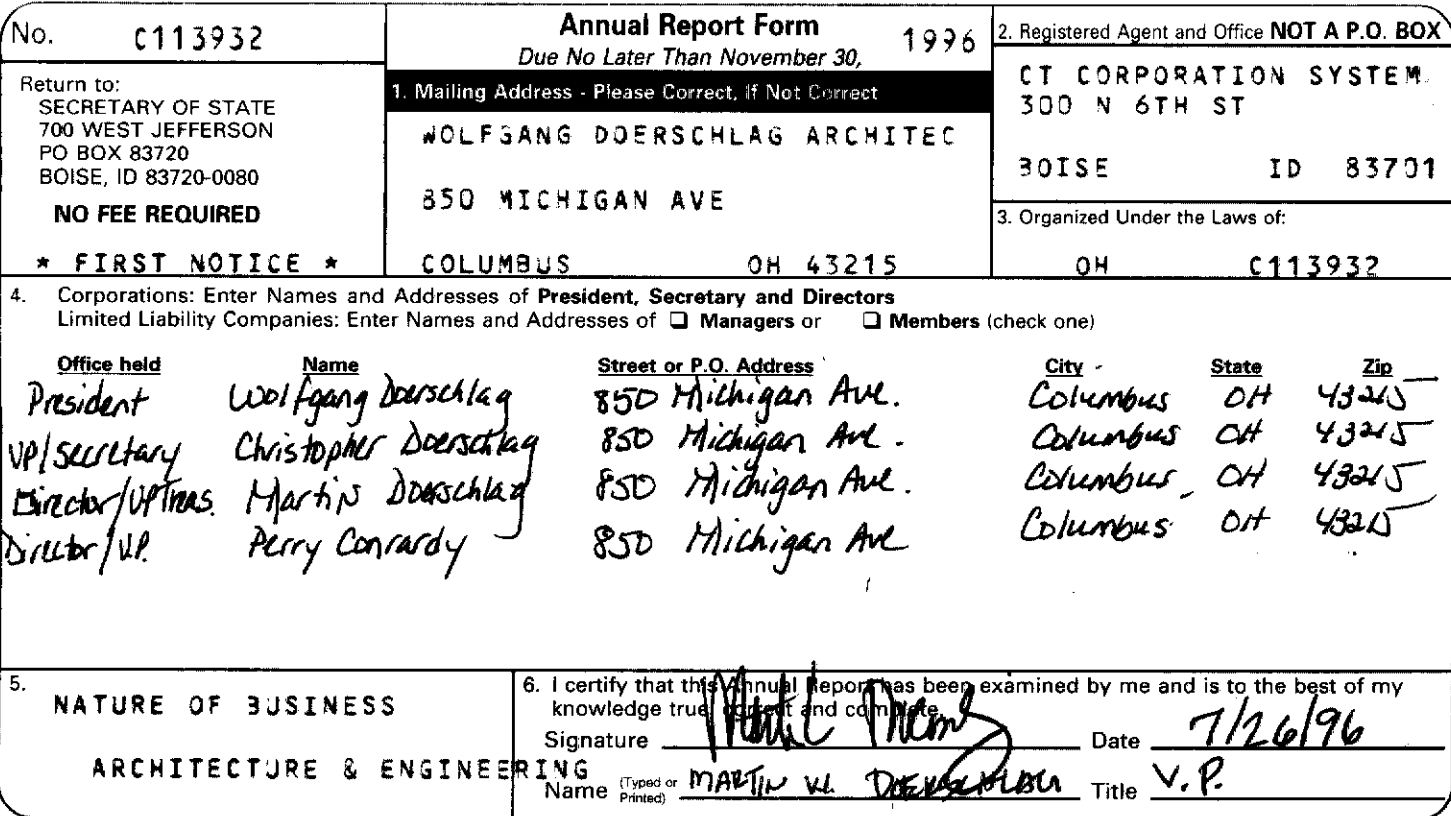 No. C113932
Return to:
SECRETARY OF STATE
700 WEST JEFFERSON
PO BOX 83720
BOISE, ID 83720-0080
NO FEE REQUIRED
* FIRST NOTICE *
Annual Report Form 1996
Due No Later Than November 30,
1. Mailing Address - Please Correct, If Not Correct
WOLFGANG DOERSCHLAG ARCHITEC
850 MICHIGAN AVE
COLUMBUS OH 43215
2. Registered Agent and Office NOT A P.O. BOX
CT CORPORATION SYSTEM
300 N 6TH ST
BOISE ID 83701
3. Organized Under the Laws of:
OH C113932
4. Corporations: Enter Names and Addresses of President, Secretary and Directors
Limited Liability Companies: Enter Names and Addresses of ❑ Managers or ❑ Members (check one)
Office held Name Street or P.O. Address City State Zip
President Wolfgang Doerschlag 850 Michigan Ave. Columbus OH 43215
VP/Secretary Christopher Doerschlag 850 Michigan Ave. Columbus OH 43215
Director/VPTreas. Martin Doerschlag 850 Michigan Ave. Columbus OH 43215
Director/V.P. Perry Conrardy 850 Michigan Ave Columbus OH 43215
5. NATURE OF BUSINESS
ARCHITECTURE & ENGINEERING
6. I certify that this Annual Report has been examined by me and is to the best of my
knowledge true, correct and complete.
Signature Date 7/26/96
Name (Typed or Printed) MARTIN W. DOERSCHLAG Title V.P.